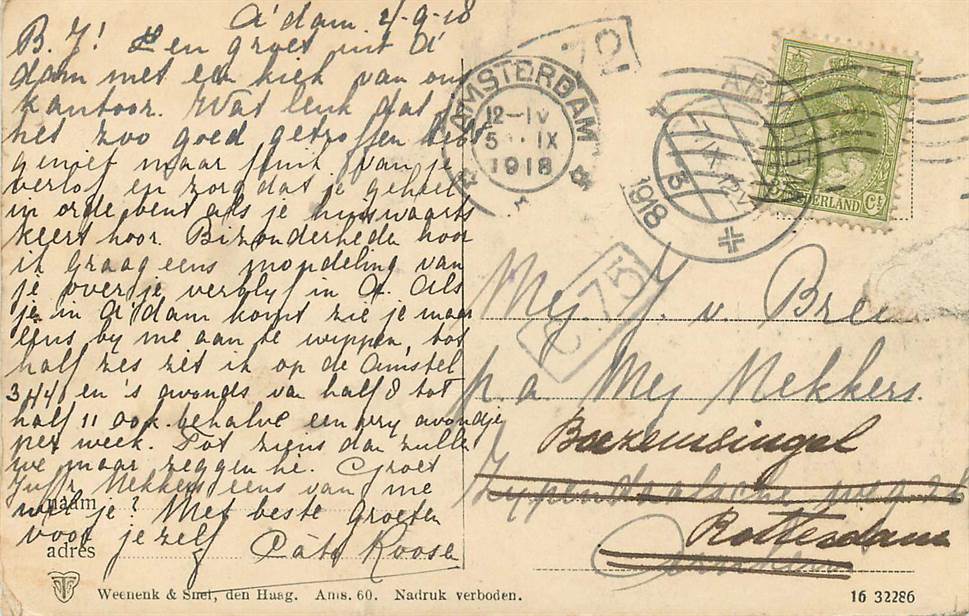 A'dam 4/-9-18
B. J! Een groet uit A'
dam met een kiek van ons
kantoor. Wat leuk dat je
het zoo goed getroffen hebt
geniet maar flink van je
verlof en zorg dat je geheel
in orde bent als je huiswaarts
keert hoor. Bizonderheden hoor
ik graag eens mondeling van
je over je verblijf in A. Als
je in A'dam komt zie je maar
eens by me aan te wippen, tot
half zes zit ik op de Amstel
344 en 's avonds va half 8 tot
half 11 ook behalve een vry avondje
per week. Tot ziens dan zulle
we maar zeggen he. Groet
Juffr. Nekkers eens van me
wil je? Met beste groeten
voor jezelf Cato Koose
naam
adres
AMSTERDAM
12-IV
5 IX
1918
1918
NEDERLAND
Ct
C. 75
Mej. J. v. Bree
p.a. Mej Nekkers.
Boezemsingel
Zypendaalsche weg 26
Rotterdam
Arnhem
Weenenk & Snel, den Haag. Ams. 60. Nadruk verboden.
16 32286